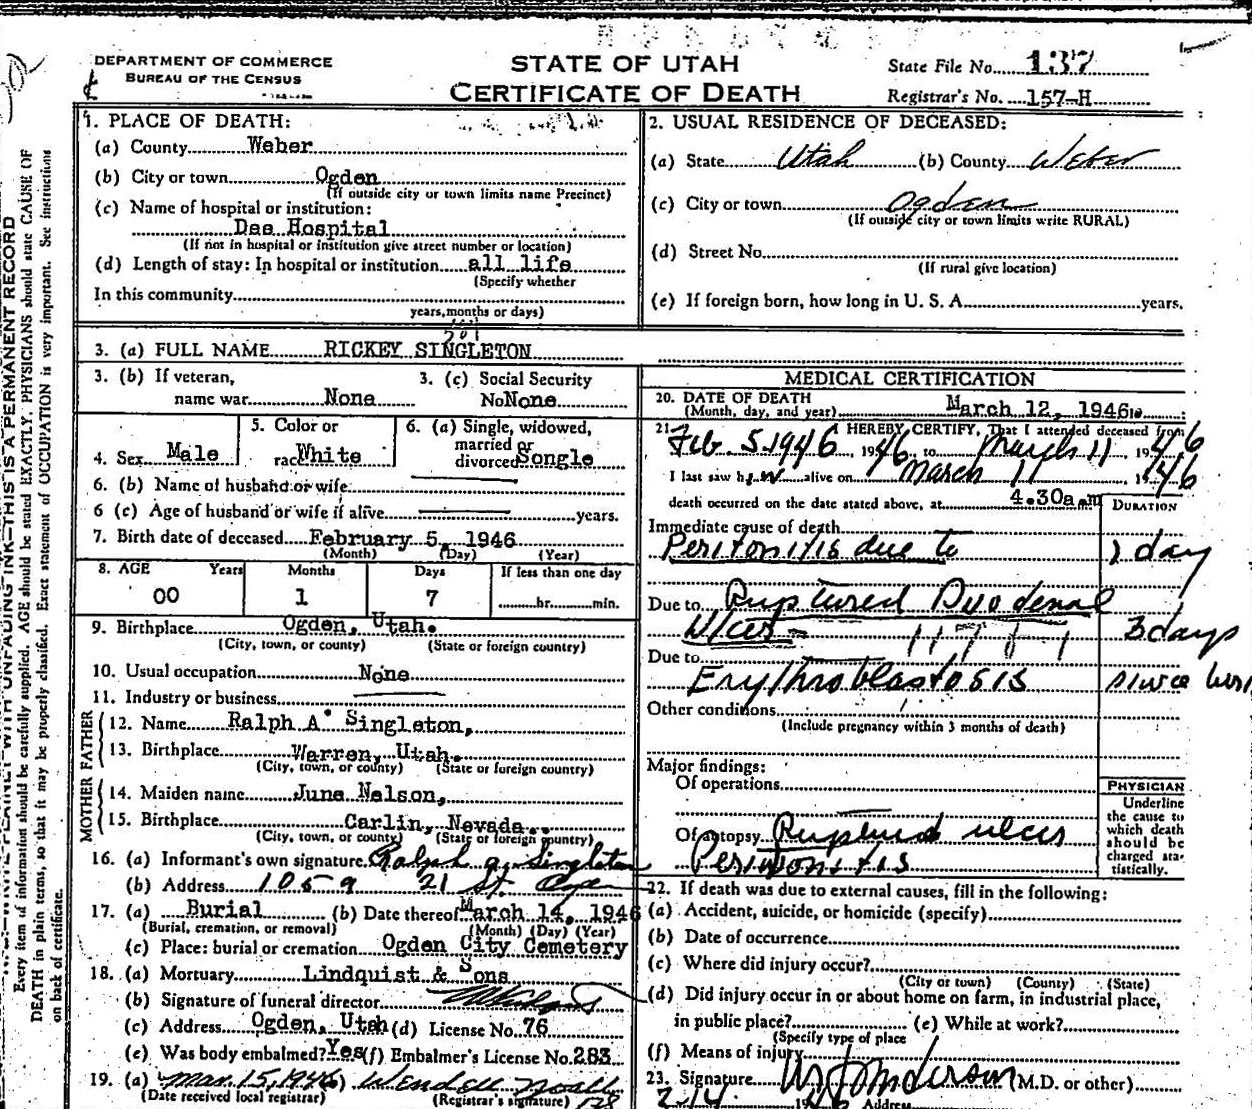 DEPARTMENT OF COMMERCE
BUREAU OF THE CENSUS
STATE OF UTAH
CERTIFICATE OF DEATH
State File No. 137
Registrar's No. 157-H
1. PLACE OF DEATH:
(a) County Weber
(b) City or town Ogden
(If outside city or town limits name Precinct)
(c) Name of hospital or institution:
Dee Hospital
(If not in hospital or institution give street number or location)
(d) Length of stay: In hospital or institution all life
(Specify whether
In this community
years, months or days)
2. USUAL RESIDENCE OF DECEASED:
(a) State Utah (b) County Weber
(c) City or town Ogden
(If outside city or town limits write RURAL)
(d) Street No.
(If rural give location)
(e) If foreign born, how long in U. S. A. years.
3. (a) FULL NAME RICKEY SINGLETON
3. (b) If veteran, name war None
3. (c) Social Security No None
4. Sex Male
5. Color or race White
6. (a) Single, widowed, married or divorced Songle
6. (b) Name of husband or wife
6 (c) Age of husband or wife if alive years.
7. Birth date of deceased February 5, 1946
(Month) (Day) (Year)
8. AGE Years Months Days If less than one day
00 1 7 hr. min.
9. Birthplace Ogden, Utah.
(City, town, or county) (State or foreign country)
10. Usual occupation None
11. Industry or business
FATHER
12. Name Ralph A Singleton,
13. Birthplace Warren, Utah.
(City, town, or county) (State or foreign country)
MOTHER
14. Maiden name June Nelson,
15. Birthplace Carlin, Nevada.
(City, town, or county) (State or foreign country)
16. (a) Informant's own signature Ralph a. Singleton
(b) Address 1059 21 St.
17. (a) Burial (b) Date thereof March 14, 1946
(Burial, cremation, or removal) (Month) (Day) (Year)
(c) Place: burial or cremation Ogden City Cemetery
18. (a) Mortuary Lindquist & Sons
(b) Signature of funeral director
(c) Address Ogden, Utah (d) License No. 76
(e) Was body embalmed? Yes (f) Embalmer's License No. 283
19. (a) Mar. 15, 1946 Wendell Noall
(Date received local registrar) (Registrar's signature) 128
MEDICAL CERTIFICATION
20. DATE OF DEATH
(Month, day, and year) March 12, 1946
21. I HEREBY CERTIFY, That I attended deceased from
Feb. 5. 1946 1946 to March 11 1946
I last saw him alive on March 11 1946
death occurred on the date stated above, at 4.30a.m
DURATION
Immediate cause of death
Peritonitis due to 1 day
Due to Ruptured Duodenal
Ulcer 3 days
Due to
Erythroblastosis since
Other conditions
(Include pregnancy within 3 months of death)
Major findings:
Of operations
Of autopsy Ruptured ulcer
Peritonitis
PHYSICIAN
Underline
the cause to
which death
should be
charged sta-
tistically.
22. If death was due to external causes, fill in the following:
(a) Accident, suicide, or homicide (specify)
(b) Date of occurrence
(c) Where did injury occur?
(City or town) (County) (State)
(d) Did injury occur in or about home on farm, in industrial place,
in public place? (e) While at work?
(Specify type of place
(f) Means of injury
23. Signature Anderson (M.D. or other)
Address
THIS IS A PERMANENT RECORD
Every item of information should be carefully supplied. AGE should be stated EXACTLY. PHYSICIANS should state CAUSE OF
DEATH in plain terms, so that it may be properly classified. Exact statement of OCCUPATION is very important. See instructions
on back of certificate.